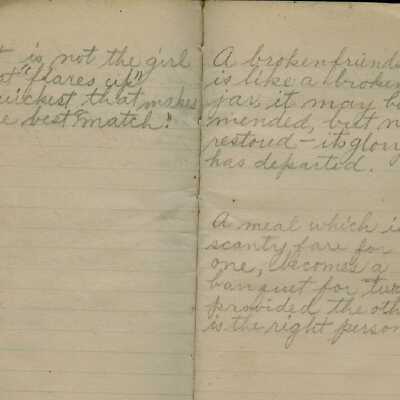 t is not the girl
at "flares up"
quickest that makes
e best "match."
A broken friends
is like a broken
jar it may b
mended, but n
restored - its glor
has departed.
A meal which i
scanty fare for
one, becomes a
banquet for tw
provided the oth
is the right person